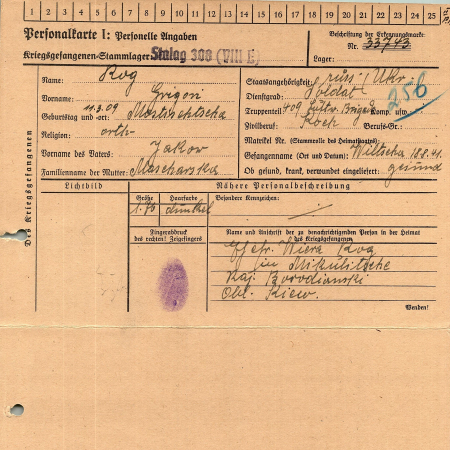 1 2 3 4 5 6 7 8 9 10 11 12 13 14 15 16 17 18 19 20 21 22 23 24 25
Personalkarte I: Personelle Angaben
Kriegsgefangenen-Stammlager: Stalag 308 (VIII E)
Beschriftung der Erkennungsmarke
Nr. 33743
Lager:
Des Kriegsgefangenen
Name: Kog
Vorname: Grigori
Geburtstag und -ort: 11.3.09
Religion: orth.
Vorname des Vaters: Jakow
Familienname der Mutter: Moscharska
Staatsangehörigkeit: russ. Ukr.
Dienstgrad: Soldat
Truppenteil: 409 Komp. usw.
Zivilberuf: Koch Berufs-Gr.:
Matrikel Nr. (Stammrolle des Heimatstaates):
Gefangennahme (Ort und Datum): Wiltscha 18.8.41.
Ob gesund, krank, verwundet eingeliefert: gesund
256
Lichtbild
Nähere Personalbeschreibung
Größe Haarfarbe Besondere Kennzeichen:
1.70 dunkel
Fingerabdruck
des rechten! Zeigefingers
Name und Anschrift der zu benachrichtigenden Person in der Heimat
des Kriegsgefangenen
Ehefr. Wiera Kog
in Mikulitsche
Raj. Borodianski
Obl. Kiew.
Wenden!